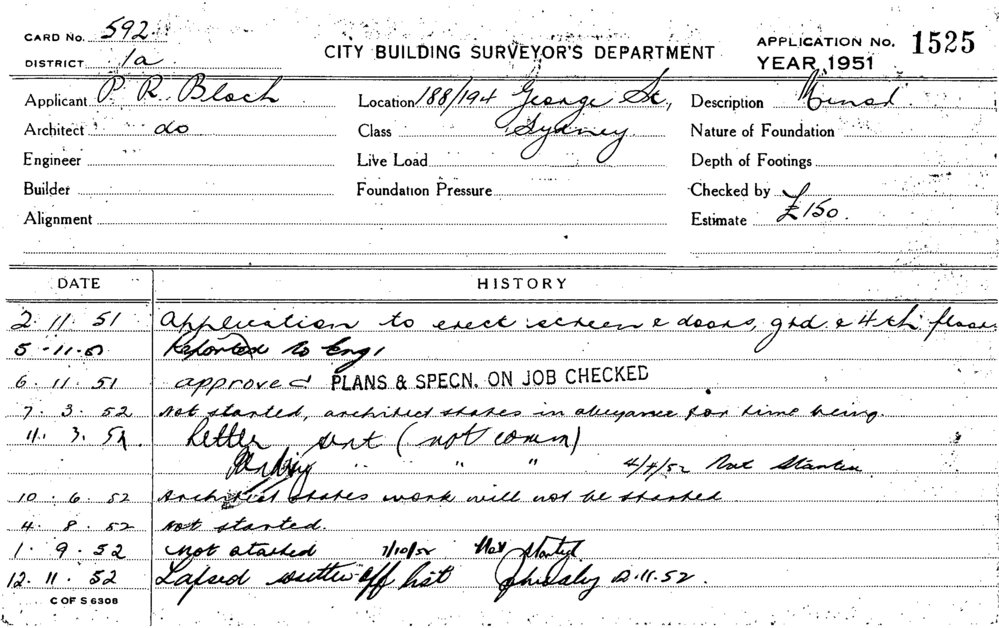 CARD No. 592
DISTRICT 1a
CITY BUILDING SURVEYOR'S DEPARTMENT
APPLICATION No. 1525
YEAR 1951
Applicant P R Bloch Location 188/194 George St, Description Minor
Architect do Class Sydney Nature of Foundation
Engineer Live Load Depth of Footings
Builder Foundation Pressure Checked by
Alignment Estimate £150.
DATE HISTORY
2. 11. 51 Application to erect screen & doors, grd. & 4th floor
5-11-51 Reported to Eng
6. 11. 51 approved PLANS & SPECN. ON JOB CHECKED
7. 3. 52 Not started, architect states in abeyance for time being.
11. 3. 52. Letter sent (not comm)
" " " 4/4/52 Not Started
10. 6. 52 Architect states work will not be started
4. 8. 52 Not started.
1. 9. 52 Not started 7/10/52 Not Started
12. 11. 52 Lapsed written off list 12.11.52.
C OF S 6308